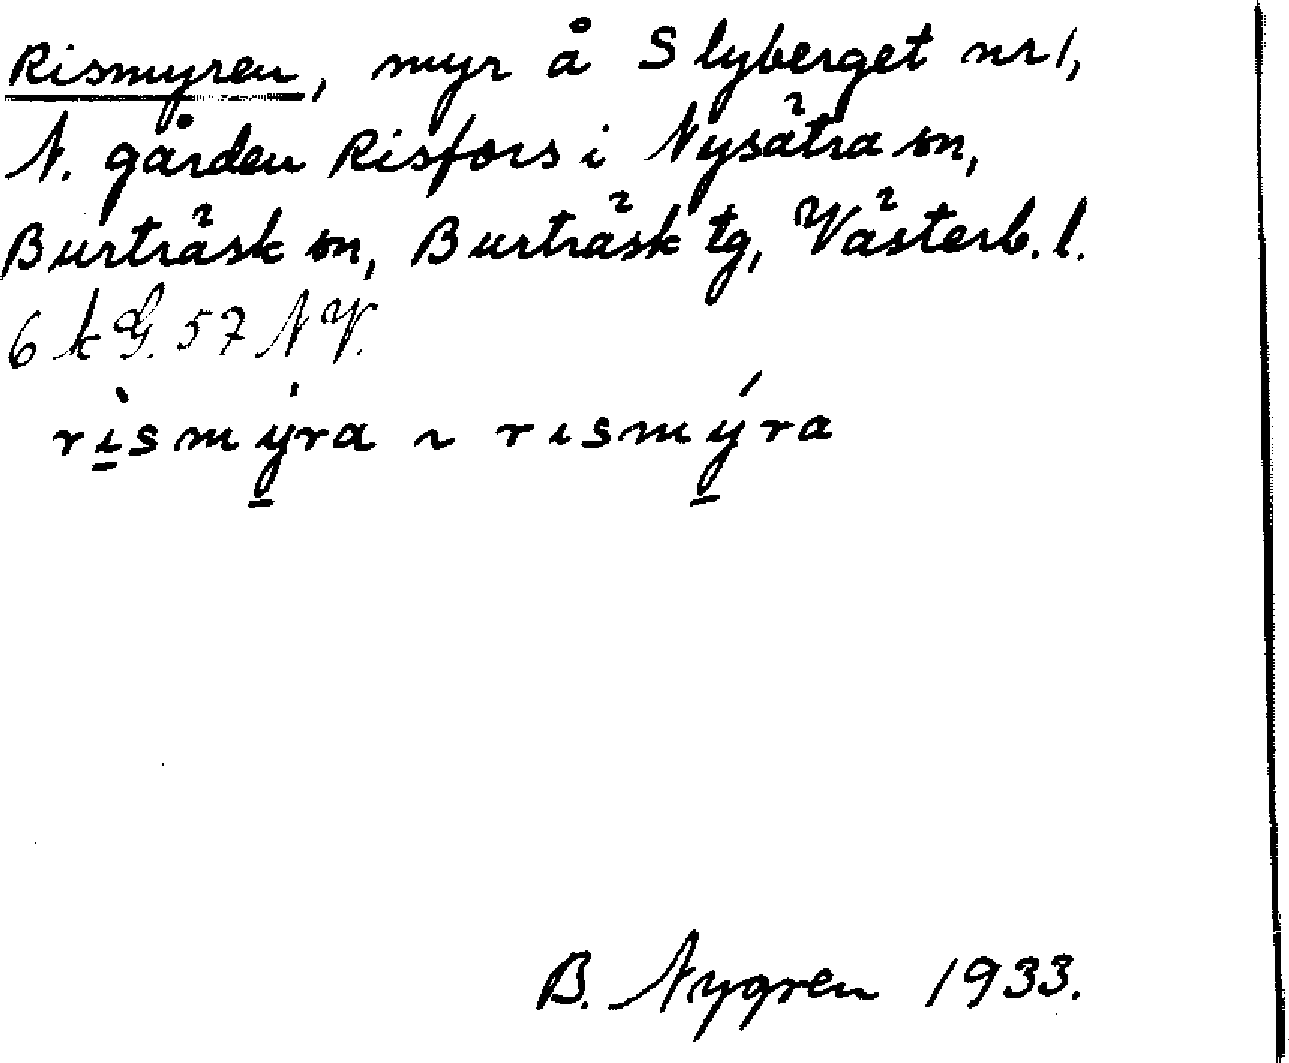 Rismyren, myr å Slyberget nr 1,
N. gården Risfors i Nysätra sn,
Burträsk sn, Burträsk tg, Västerb. l.
6 k G. 57 N V.
rìsmýra ~ rismýra
B. Nygren 1933.